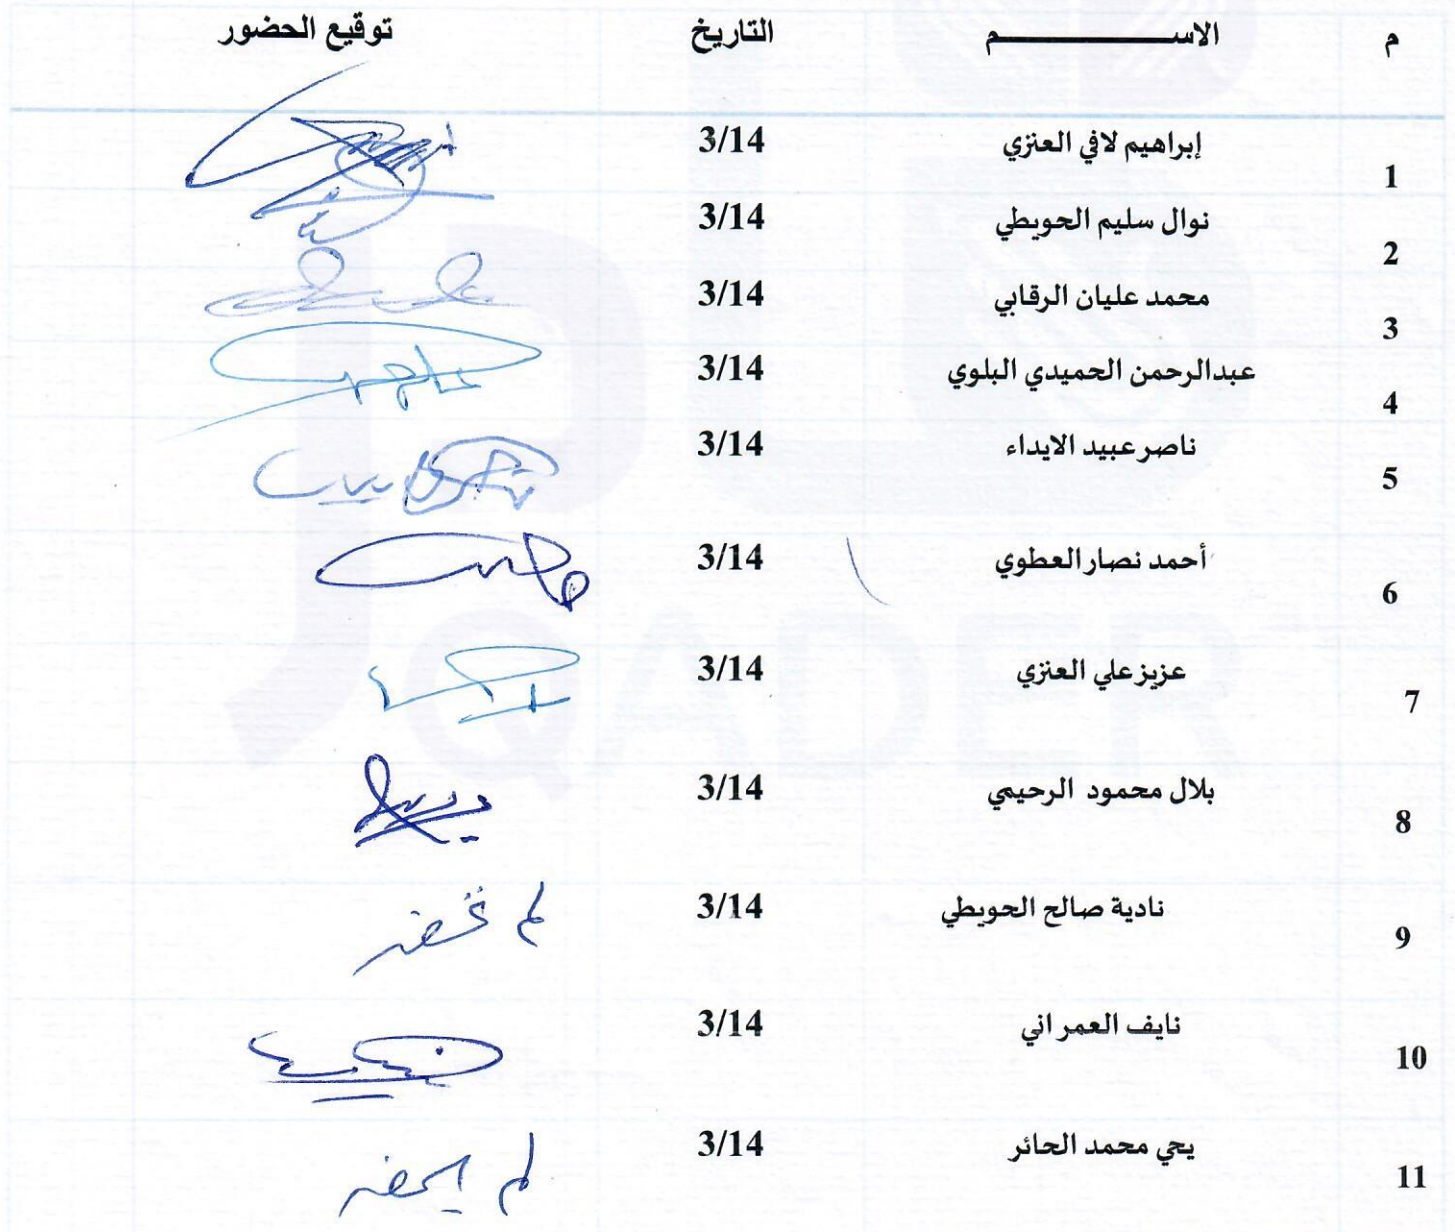 م الاســـــــــــم التاريخ توقيع الحضور
1 إبراهيم لافي العنزي 3/14
2 نوال سليم الحويطي 3/14
3 محمد عليان الرقابي 3/14
4 عبدالرحمن الحميدي البلوي 3/14
5 ناصر عبيد الايداء 3/14
6 أحمد نصار العطوي 3/14
7 عزيز علي العنزي 3/14
8 بلال محمود الرحيمي 3/14
9 نادية صالح الحويطي 3/14 لم تحضر
10 نايف العمراني 3/14
11 يحي محمد الحائر 3/14 لم يحضر
QADER